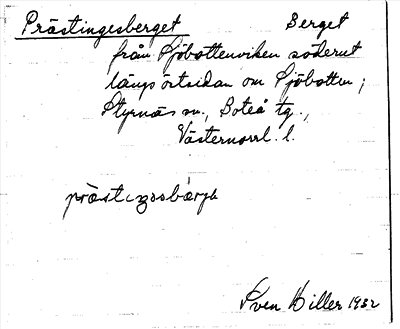 Prästingesberget Berget
från Sjöbottenviken söderut
längs östsidan om Sjöbotten;
Styrnäs sn., Boteå tg.,
Västernorrl. l.
Sven Hiller 1932